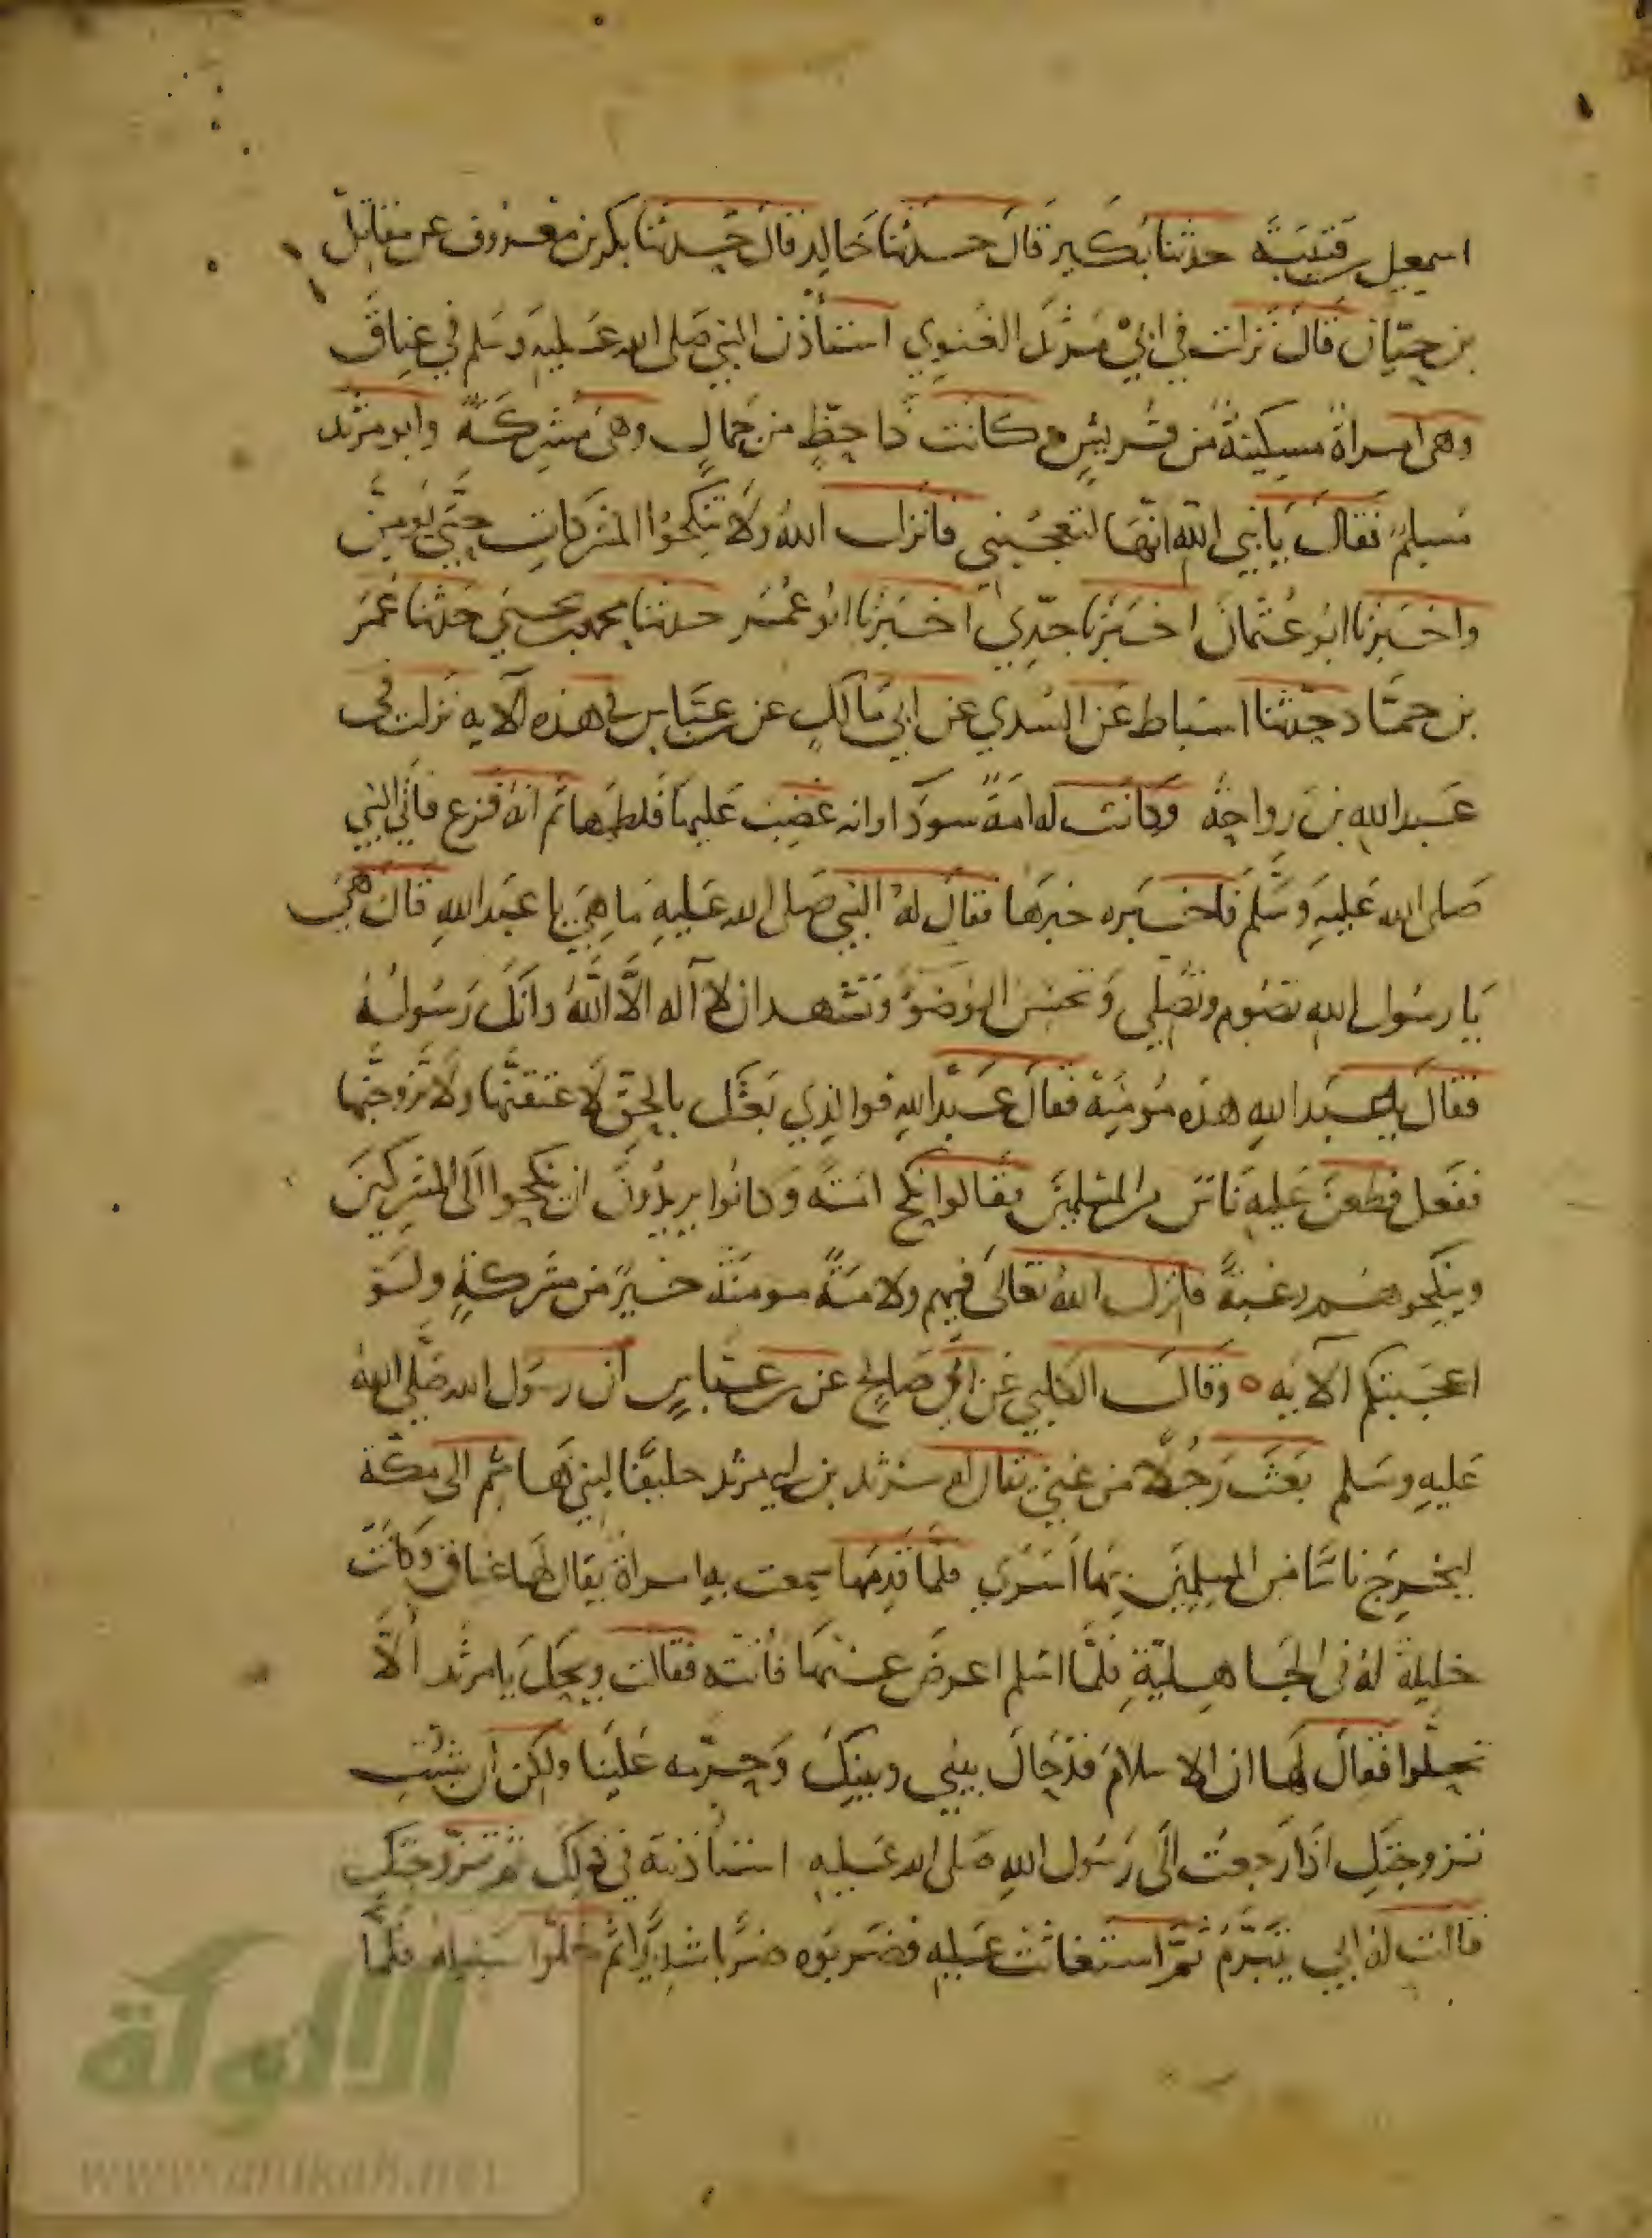 اسمعيل بن قتيبة حدثنا بكير قال حدثنا خالد قال حدثنا بكر بن معروف عن مقاتل
بن حيان قال نزلت في ابي مرثد الغنوي استأذن النبي صلى الله عليه وسلم في عناق
وهى امراة مسكينة من قريش وكانت ذا حظ من جمال وهي مشركة وابو مرثد
مسلم فقال يا نبي الله انها لتعجبني فانزل الله ولا تنكحوا المشركات حتى يومن
واخبرنا ابو عثمان اخبرنا جدي اخبرنا ابو عمر حدثنا محمد بن يحيى حدثنا عمر
بن حماد حدثنا اسباط عن السدي عن ابي مالك عن بن عباس في هذه الآيه نزلت في
عبد الله بن رواحة وكانت له امة سودا وانه غضب عليها فلطمها ثم انه فزع فاتى النبي
صلى الله عليه وسلم فاخبره خبرها فقال له النبي صلى الله عليه ما هي يا عبد الله قال هي
يا رسول الله تصوم وتصلي وتحسن الوضوء وتشهد ان لا اله الا الله وانك رسوله
فقال يا عبد الله هذه مومنة فقال عبد الله فوالذي بعثك بالحق لاعتقنها ولاتزوجنها
ففعل فطعن عليه ناس من المسلمين فقالوا نكح امته وكانوا يريدون ان ينكحوا الى المشركين
وينكحوهم رغبة فانزل الله تعالى فيهم ولامة مومنة خير من مشركة ولو
اعجبتكم الآيه ٥ وقال الكلبي عن ابي صالح عن بن عباس ان رسول الله صلى الله
عليه وسلم بعث رجلا من غني يقال له مرثد بن ابي مرثد حليفا لبني هاشم الى مكة
ليخرج ناسا من المسلمين بها اسرى فلما قدمها سمعت به امراة يقال لها عناق وكانت
خليلة له في الجاهلية فلما اسلم اعرض عنها فاتته فقالت ويحك يا مرثد ألا
تخلوا فقال لها ان الاسلام قد حال بيني وبينك وحرمه علينا ولكن ان شئت
تزوجتك اذا رجعت الى رسول الله صلى الله عليه استأذنته في ذلك ثم تزوجتك
قالت له ابي تتبرم ثم استغاثت عليه فضربوه ضربا شديدا ثم خلوا سبيله فلما
الألوكة
www.alukah.net